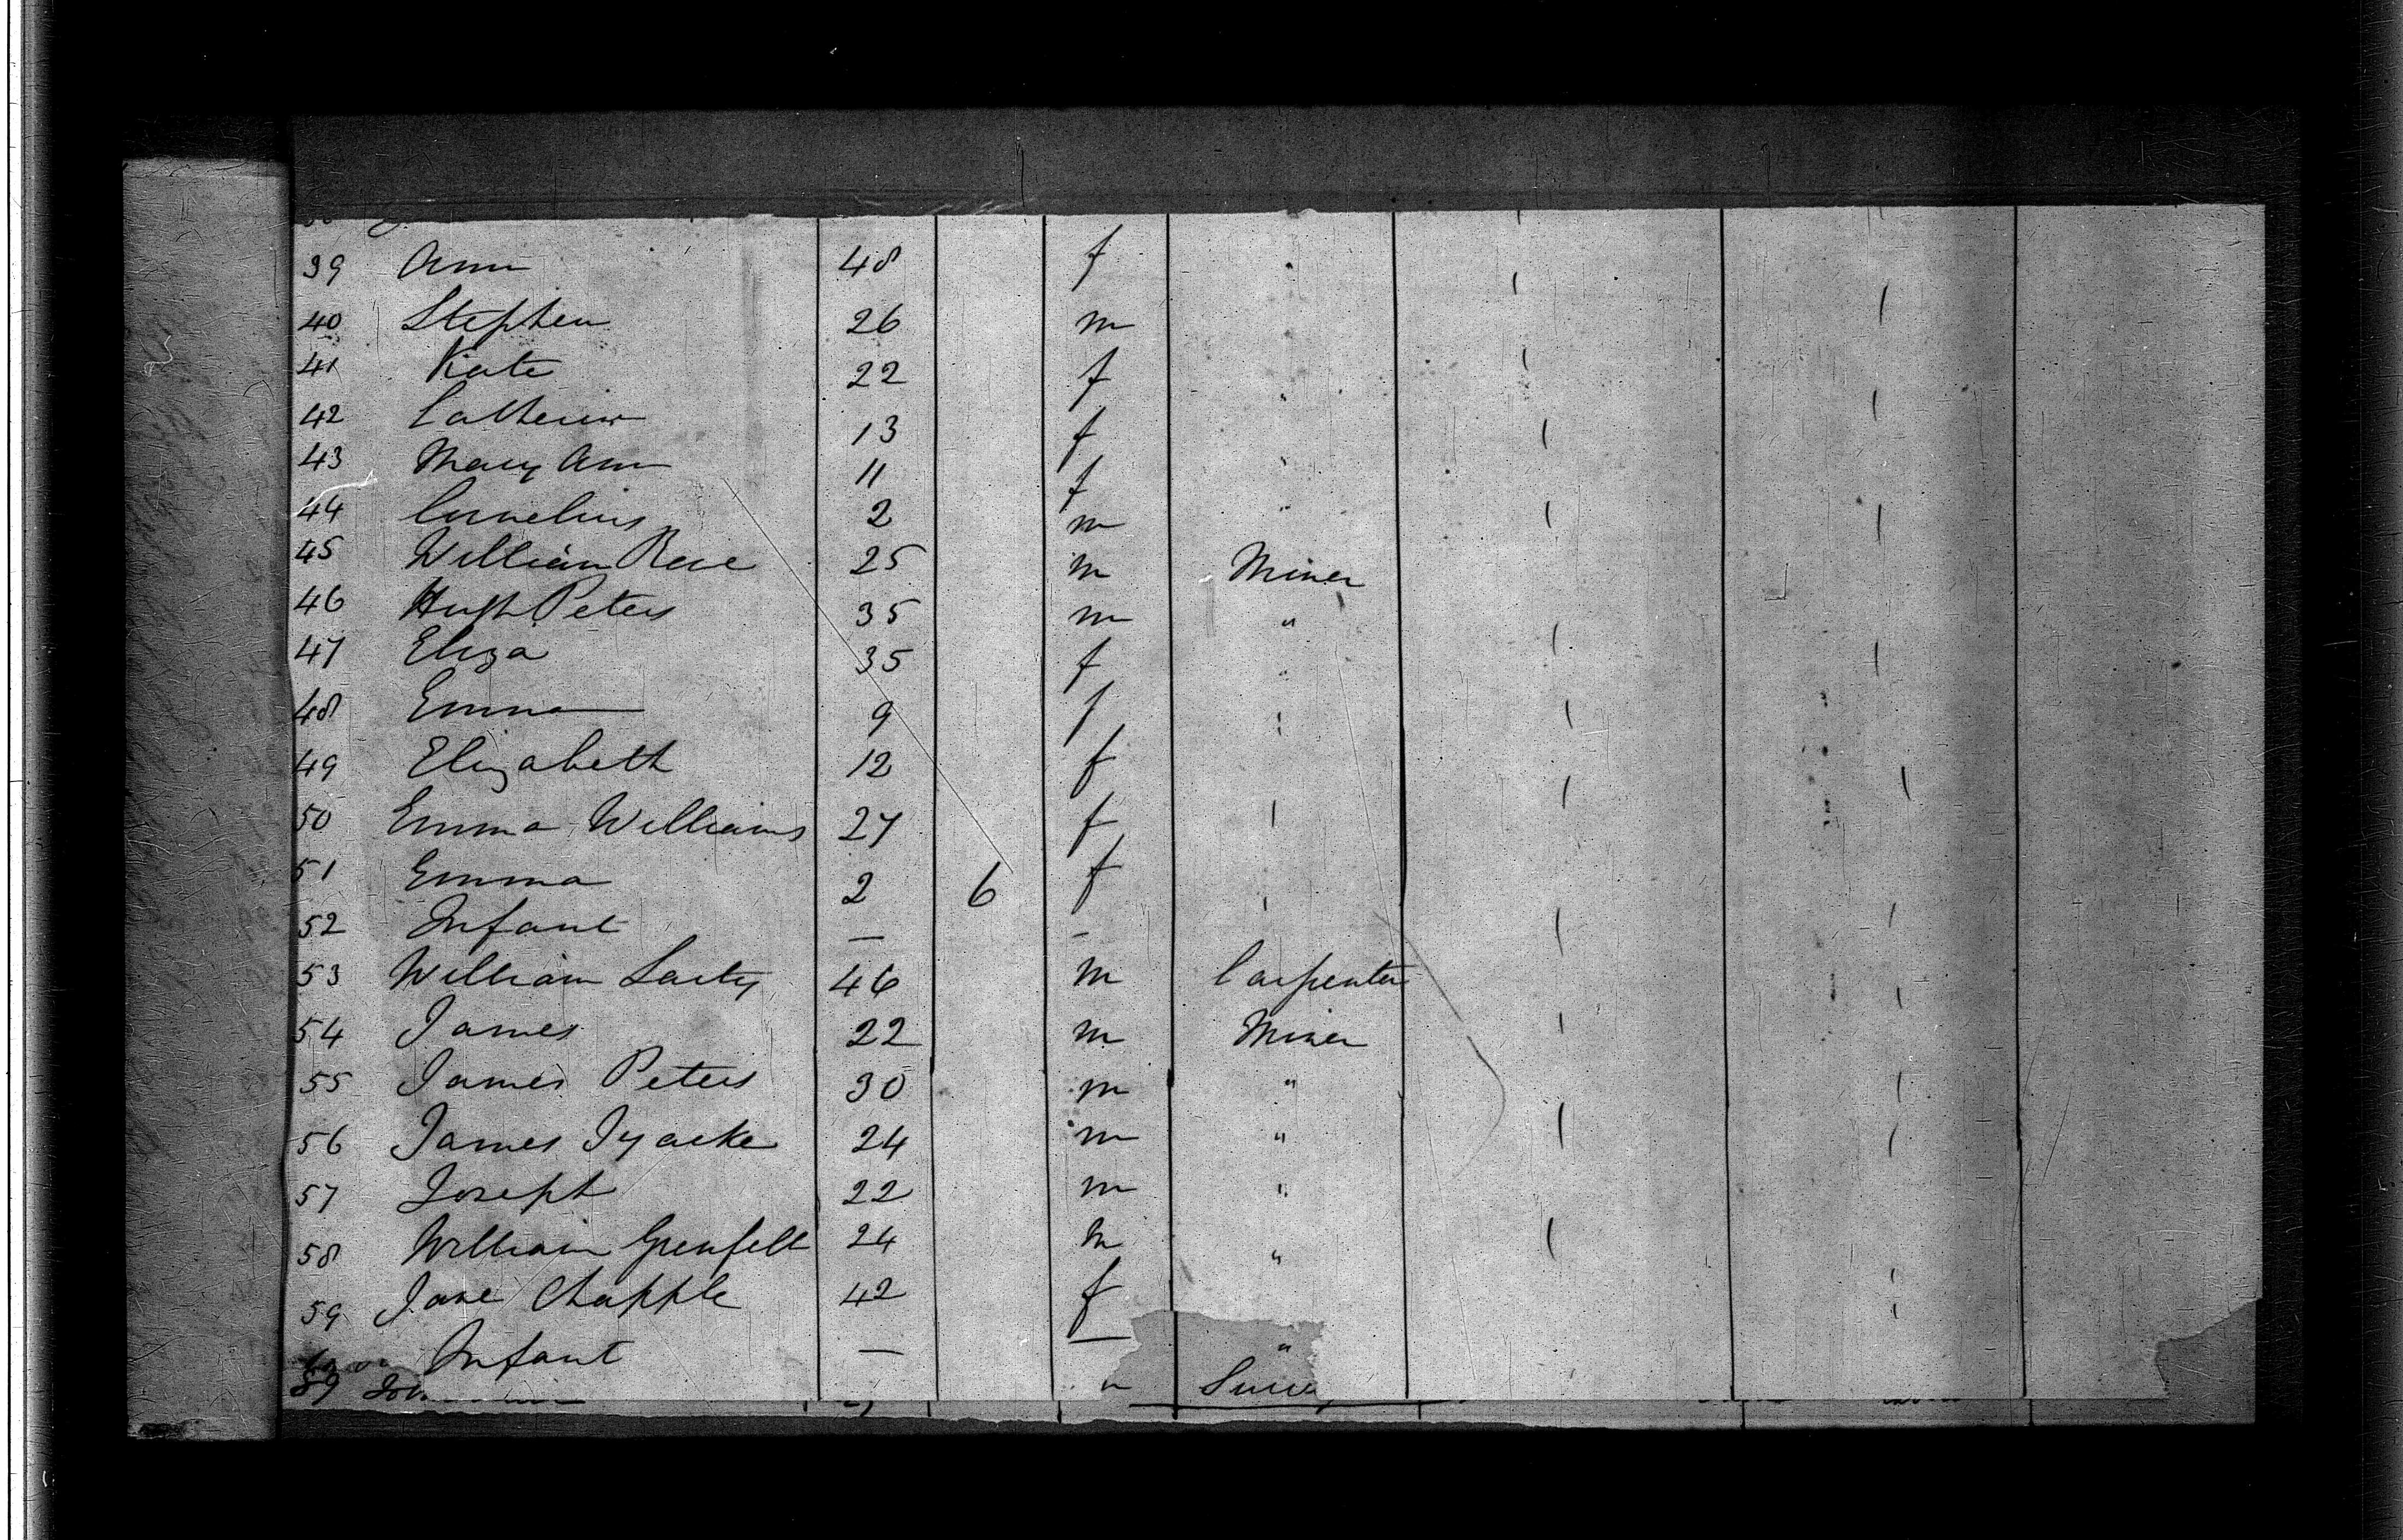 39 Ann 48 f "
40 Stephen 26 m
41 Kate 22 f "
42 Catherine 13 f
43 Mary Ann 11 f "
44 Cornelius 2 m "
45 William Rowe 25 m Miner
46 Hugh Peters 35 m "
47 Eliza 35 f "
48 Emma 9 f "
49 Elizabeth 12 f
50 Emma Williams 27 f
51 Emma 2 6 f
52 Infant — -
53 William Laity 46 m Carpenter
54 James 22 m Miner
55 James Peters 30 m "
56 James Tyacke 24 m "
57 Joseph 22 m "
58 William Grenfell 24 m "
59 Jane Chapple 42 f
Infant — — "
59